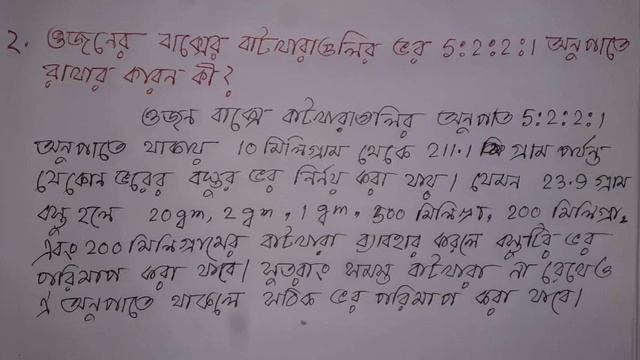 ২. ওজনের বাক্সের বাটখারাগুলির ভর 5:2:2:1 অনুপাতে
রাখার কারন কী?
ওজন বাক্সে বাটখারাগুলির অনুপাত 5:2:2:1
অনুপাতে থাকায় 10 মিলিগ্রাম থেকে 211.1 গ্রাম পর্যন্ত
যেকোন ভরের বস্তুর ভর নির্নয় করা যায়। যেমন 23.9 গ্রাম
বস্তু হলে 20gm, 2gm, 1gm, 500 মিলিগ্রা, 200 মিলিগ্রা,
এবং 200 মিলিগ্রামের বাটখারা ব্যবহার করলে বস্তুটির ভর
পরিমাপ করা যাবে। সুতরাং সমস্ত বাটখারা না রেখেও
ঐ অনুপাতে থাকলে সঠিক ভর পরিমাপ করা যাবে।